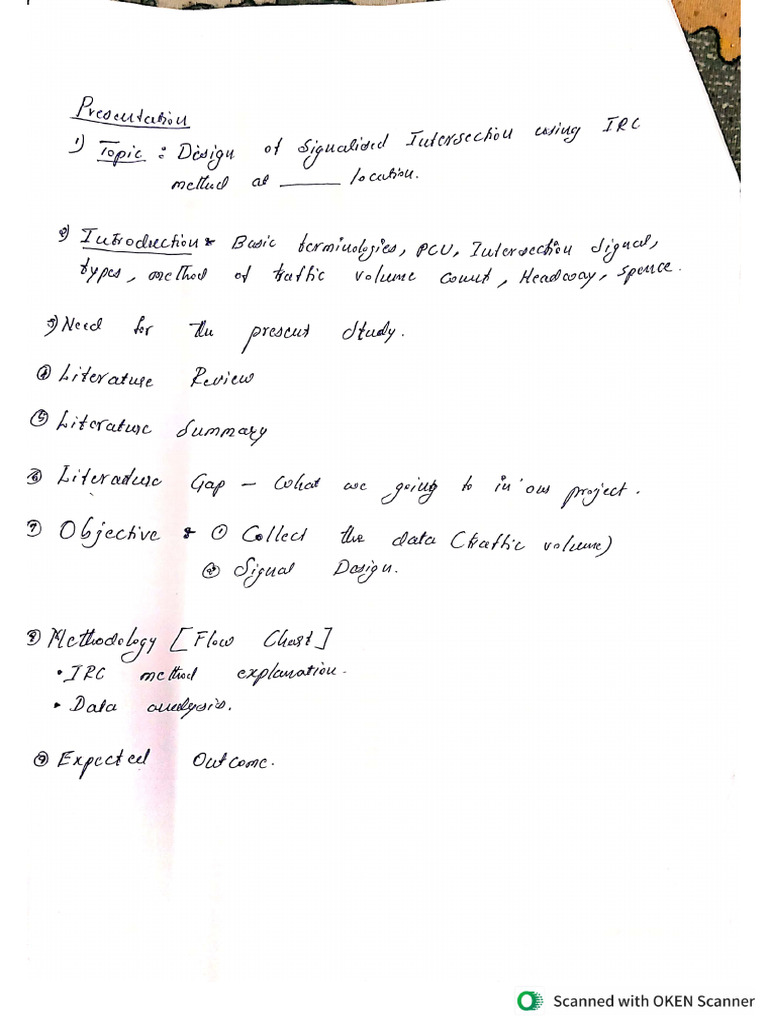 Presentation
1) Topic : Design of Signalised Intersection using IRC
method at ______ location.
2) Introduction : Basic terminologies, PCU, Intersection signal,
types, method of traffic volume count, Headway, Spence.
3) Need for the present study.
④ Literature Review
⑤ Literature Summary
⑥ Literature Gap - What we going to in our project.
⑦ Objective : ① Collect the data (traffic volume)
② Signal Design.
⑧ Methodology [Flow Chart]
• IRC method explanation.
• Data analysis.
⑨ Expected Outcome.
Scanned with OKEN Scanner